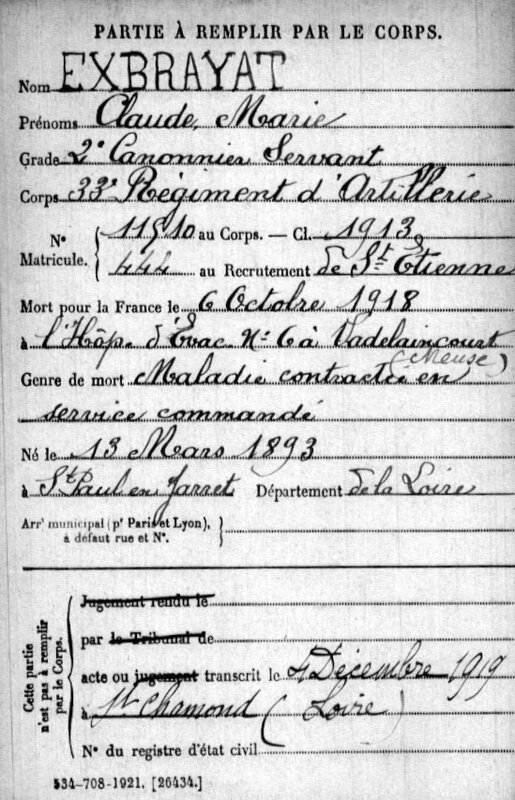 PARTIE À REMPLIR PAR LE CORPS.
Nom EXBRAYAT
Prénoms Claude, Marie
Grade 2e Canonnier Servant
Corps 33e Régiment d'Artillerie
N° Matricule. { 11510 au Corps. — Cl. 1913
444 au Recrutement de St. Etienne
Mort pour la France le 6 Octobre 1918
à l'Hôp. d'Évac. No 6 à Vadelaincourt
(Meuse)
Genre de mort Maladie contractée en
service commandé
Né le 13 Mars 1893
à St Paul en Jarret Département de la Loire
Arrt municipal (pr Paris et Lyon), à défaut rue et N°. }
Cette partie n'est pas à remplir par le Corps.
Jugement rendu le
par le Tribunal de
acte ou jugement transcrit le 4 Décembre 1919
à St Chamond (Loire)
N° du registre d'état civil
534-708-1921. [26434.]